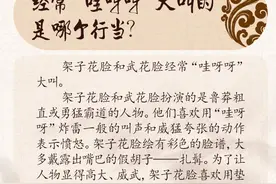 经常“哇呀呀”大叫的
是哪个行当？
架子花脸和武花脸经常“哇呀呀”
大叫。
架子花脸和武花脸扮演的是鲁莽粗
直或勇猛霸道的人物。他们喜欢用“哇
呀呀”炸雷一般的叫声和威猛夸张的动作
表示愤怒。架子花脸绘有彩色的脸谱，大
多戴露出嘴巴的假胡子——扎髯。为了让
人物显得高大、威武，架子花脸喜欢用垫